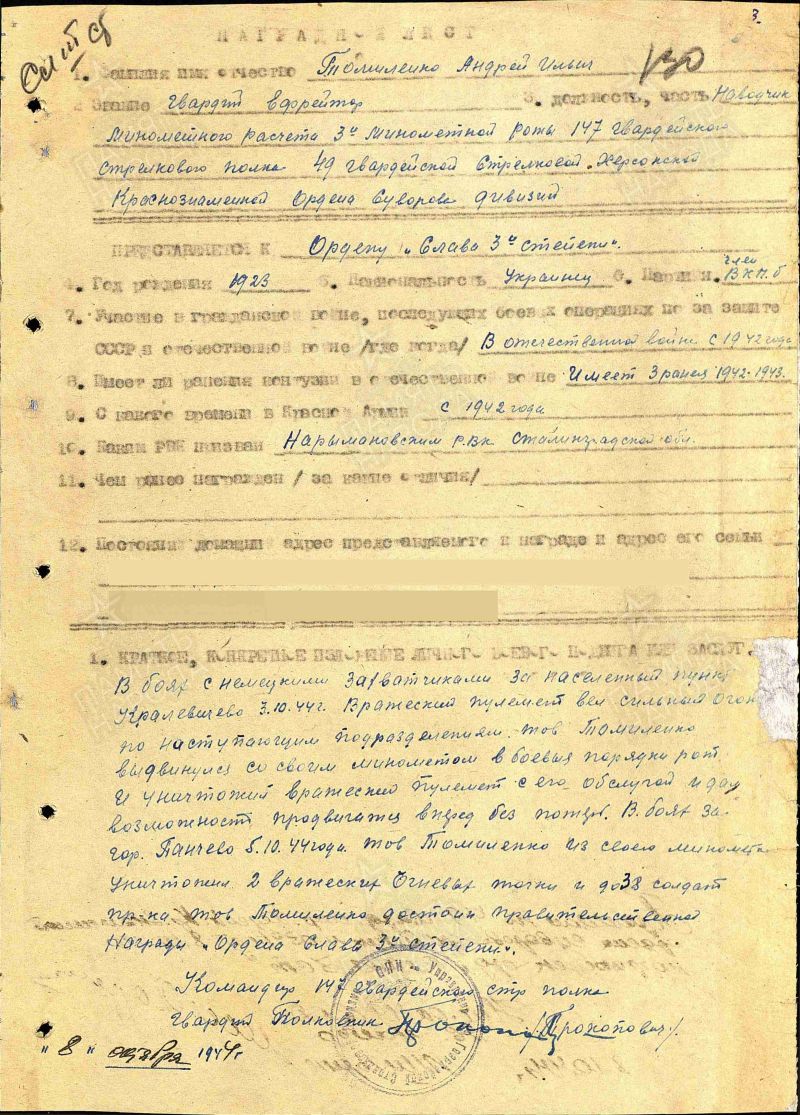 3.
НАГРАДНОЙ ЛИСТ
1. Фамилия имя отчество Томиленко Андрей Ильич
2. Звание Гвардии Ефрейтор 3. должность, часть Наводчик
минометного расчета 3й минометной роты 147 гвардейского
стрелкового полка 49 гвардейской стрелковой Херсонской
Краснознаменной Ордена Суворова дивизии
ПРЕДСТАВЛЯЕТСЯ К Ордену „Слава 3й степени".
4. Год рождения 1923 5. Национальность Украинец 6. Партийн. член ВКП.б
7. Участие в гражданской войне, последующих боевых операциях по за защите
СССР в отечественной войне /где когда/ В отечественной войне с 1942 года
8. Имеет ли ранения контузии в отечественной войне Имеет 3 ранен 1942-1943.
9. С какого времени в Красной Армии с 1942 года
10. Каким РВК призван Нарымановским р.вк Сталинградской обл.
11. Чем ранее награжден / за какие отличия/
12. Постоянный домашний адрес представляемого к награде и адрес его семьи
1. КРАТКОЕ, КОНКРЕТНОЕ ИЗЛОЖЕНИЕ ЛИЧНОГО БОЕВОГО ПОДВИГА ИЛИ ЗАСЛУГ.
В боях с немецкими захватчиками за населенный пункт
Кралевичево 3.10.44г. Вражеский пулемет вел сильный огонь
по наступающим подразделениям. тов Томиленко
выдвинулся со своим минометом в боевыя порядки рот
и уничтожил вражеский пулемет с его обслугой и дал
возможность продвигатся вперед без потерь. В боях за
гор. Панчево 5.10.44 года. тов Томиленко из своего миномета
уничтожил 2 вражеских огневых точки и до 38 солдат
пр-ка тов Томиленко достоин правительственной
Награды „Ордена Слава 3й степени".
Командир 147 гвардейского стр полка
гвардии Полковник /Прокопович/.
„8" октября 1944г